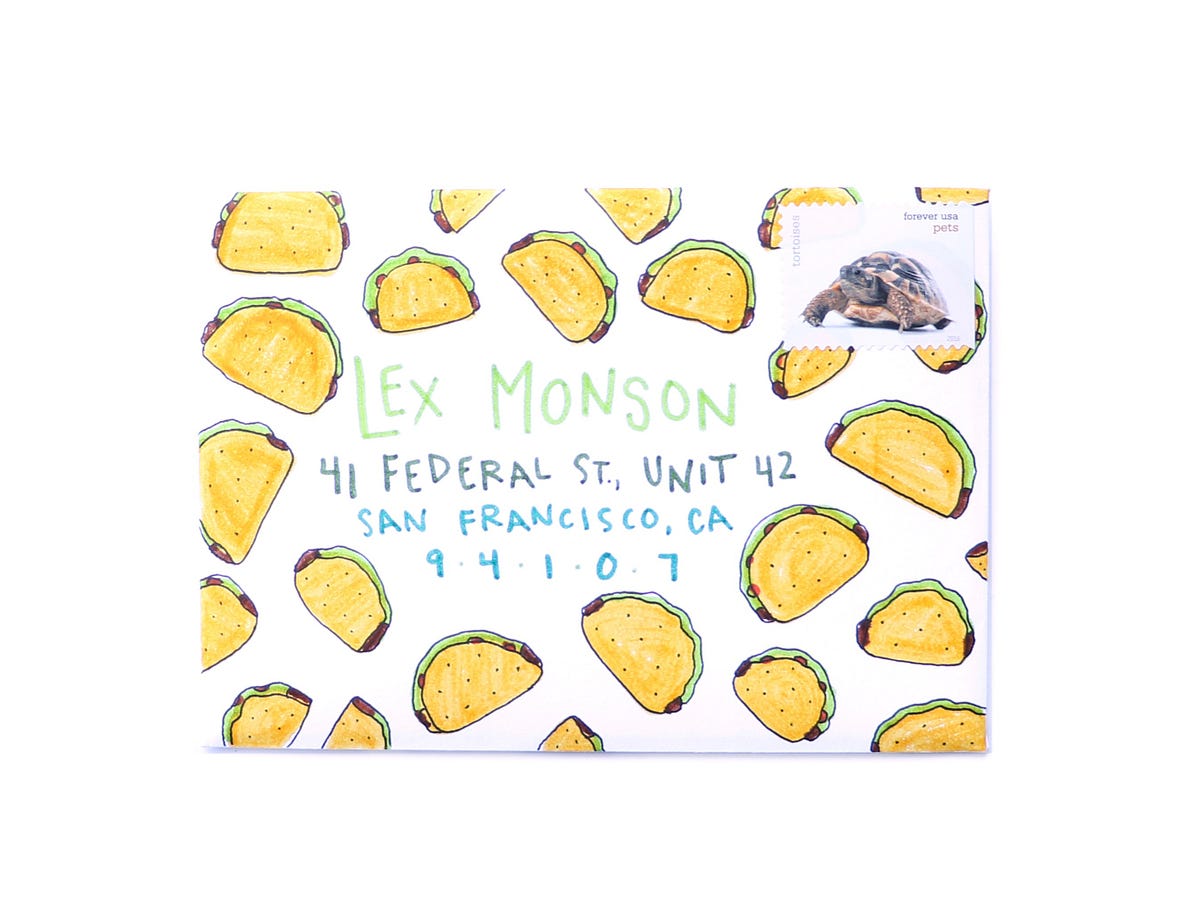 forever usa
pets
tortoises
LEX MONSON
41 FEDERAL ST., UNIT 42
SAN FRANCISCO, CA
9·4·1·0·7
2016